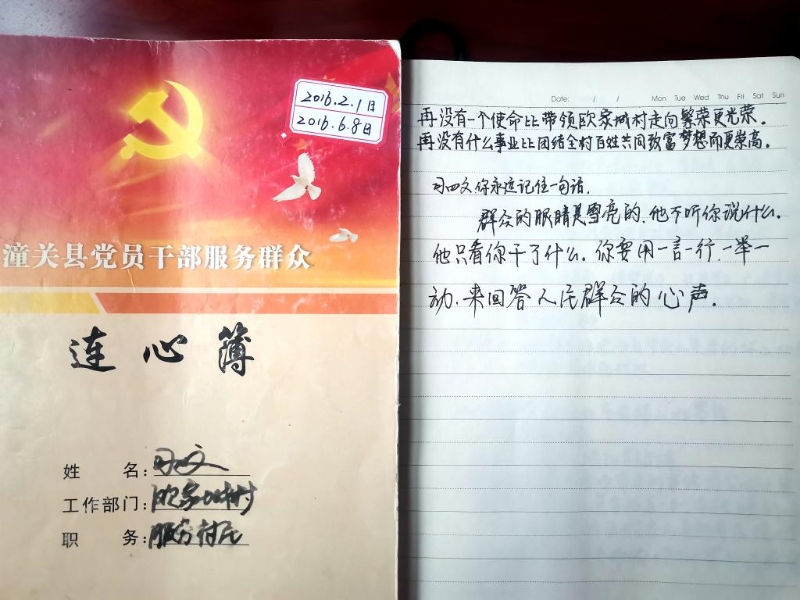 2016.2.1日
2016.6.8日
潼关县党员干部服务群众
连心簿
姓 名:
工作部门:欧家城村
职 务:服务村民
Date: / / Mon Tue Wed Thu Fri Sat Sun
再没有一个使命比带领欧家城村走向繁荣更光荣。
再没有什么事业比团结全村百姓共同致富梦想而更崇高。
你永远记住一句话,
群众的眼睛是雪亮的,他不听你说什么.
他只看你干了什么.你要用一言一行,一举一
动.来回答人民群众的心声.